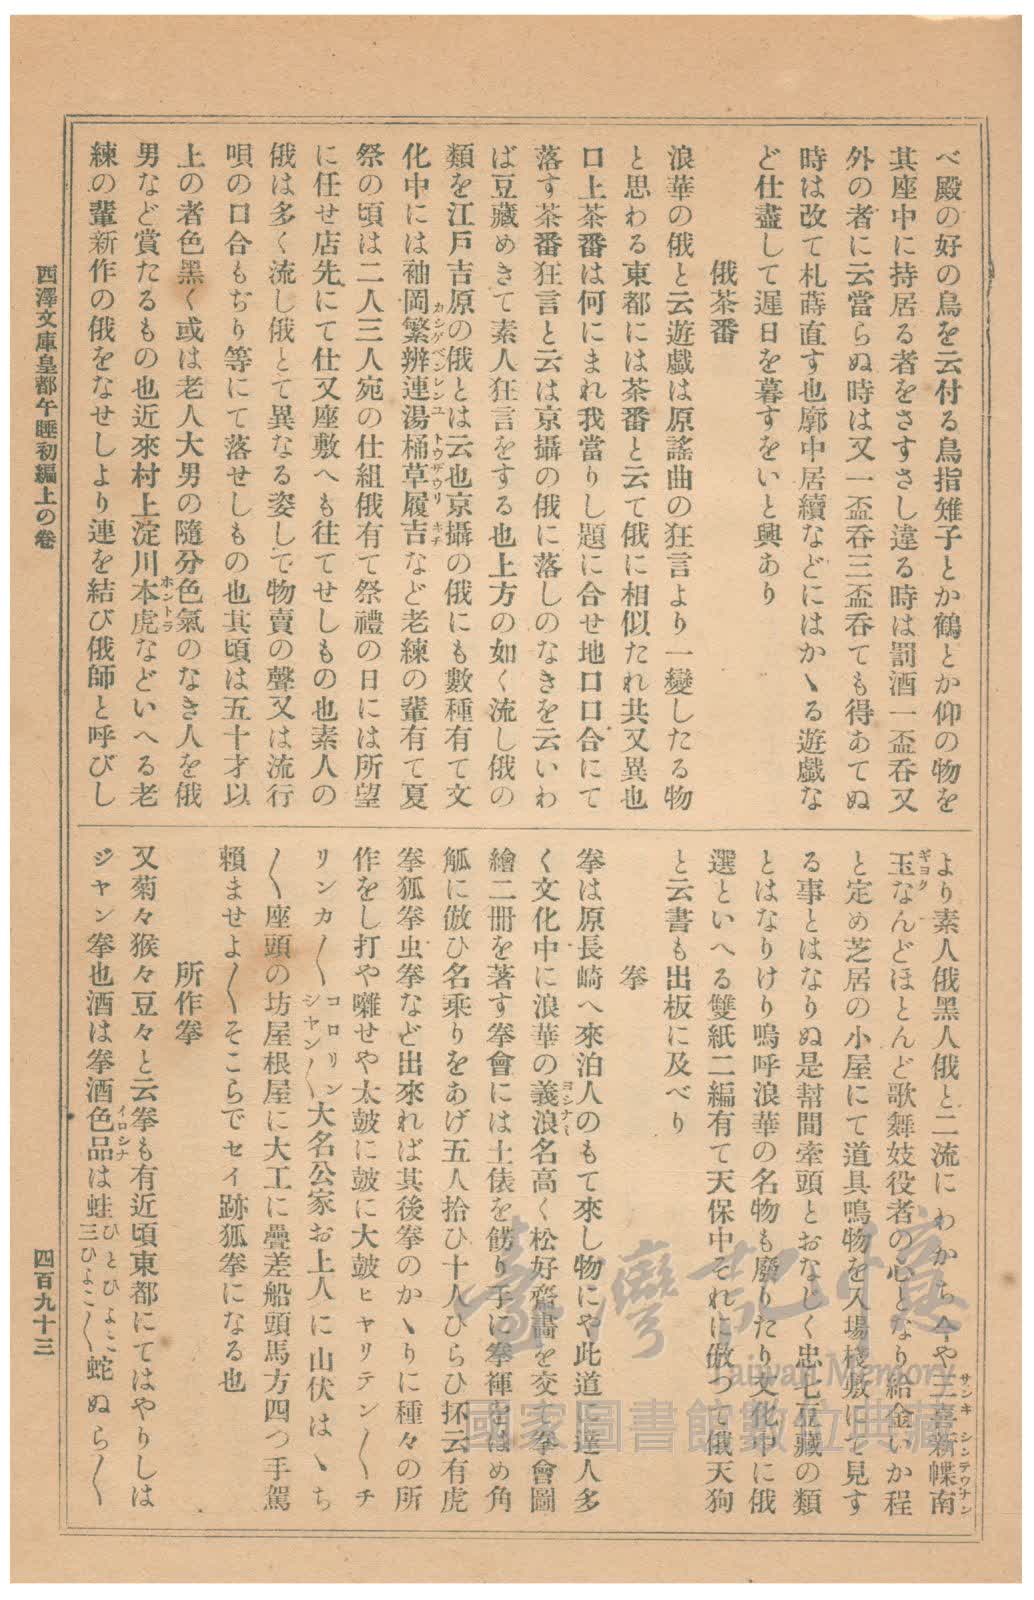 べ殿の好の鳥を云付る鳥指雉子とか鶴とか仰の物を
其座中に持居る者をさすさし違る時は罰酒一盃呑又
外の者に云當らぬ時は又一盃呑三盃呑ても得あてぬ
時は改て札蒔直す也廓中居續などにはかゝる遊戯な
ど仕盡して遲日を暮すをいと興あり
俄茶番
浪華の俄と云遊戯は原謠曲の狂言より一變したる物
と思わる東都には茶番と云て俄に相似たれ共又異也
口上茶番は何にまれ我當りし題に合せ地口口合にて
落す茶番狂言と云は京攝の俄に落しのなきを云いわ
ば豆藏めきて素人狂言をする也上方の如く流し俄の
類を江戸吉原の俄とは云也京攝の俄にも數種有て文
化中には袖岡繁辨連湯桶草履吉など老練の輩有て夏
祭の頃は二人三人宛の仕組俄有て祭禮の日には所望
に任せ店先にて仕又座敷へも往てせしもの也素人の
俄は多く流し俄とて異なる姿しで物賣の聲又は流行
唄の口合もぢり等にて落せしもの也其頃は五十才以
上の者色黑く或は老人大男の隨分色氣のなき人を俄
男など賞たるもの也近來村上淀川本虎などいへる老
練の輩新作の俄をなせしより連を結び俄師と呼びし
より素人俄黑人俄と二流にわかち今や三喜新幉南
玉なんどほとんど歌舞妓役者の心となり給金いか程
と定め芝居の小屋にて道具鳴物を入場棧敷にて見す
る事とはなりぬ是幇間牽頭とおなじく忠七豆藏の類
とはなりけり嗚呼浪華の名物も廢りたり文化中に俄
選といへる雙紙二編有て天保中それに傚つて俄天狗
と云書も出板に及べり
拳
拳は原長崎へ來泊人のもて來し物にや此道に達人多
く文化中に浪華の義浪名高く松好齋畵を交て拳會圖
繪二冊を著す拳會には土俵を餝り手に拳褌をはめ角
觚に倣ひ名乘りをあげ五人拾ひ十人ひらひ抔云有虎
拳狐拳虫拳など出來れば其後拳のかゝりに種々の所
作をし打や囃せや太皷に皷に大皷ヒヤリテン〳〵チ
リンカ〳〵コロリンシヤン〳〵大名公家お上人に山伏はゝち
〳〵座頭の坊屋根屋に大工に疊差船頭馬方四つ手駕
賴ませよ〳〵そこらでセイ跡狐拳になる也
所作拳
又菊々猴々豆々と云拳も有近頃東都にてはやりしは
ジャン拳也酒は拳酒色品は蛙三ひよこ〳〵蛇ぬら〳〵
西澤文庫皇都午睡初編上の卷
四百九十三
臺灣記憶
Taiwan Memory
國家圖書館數位典藏